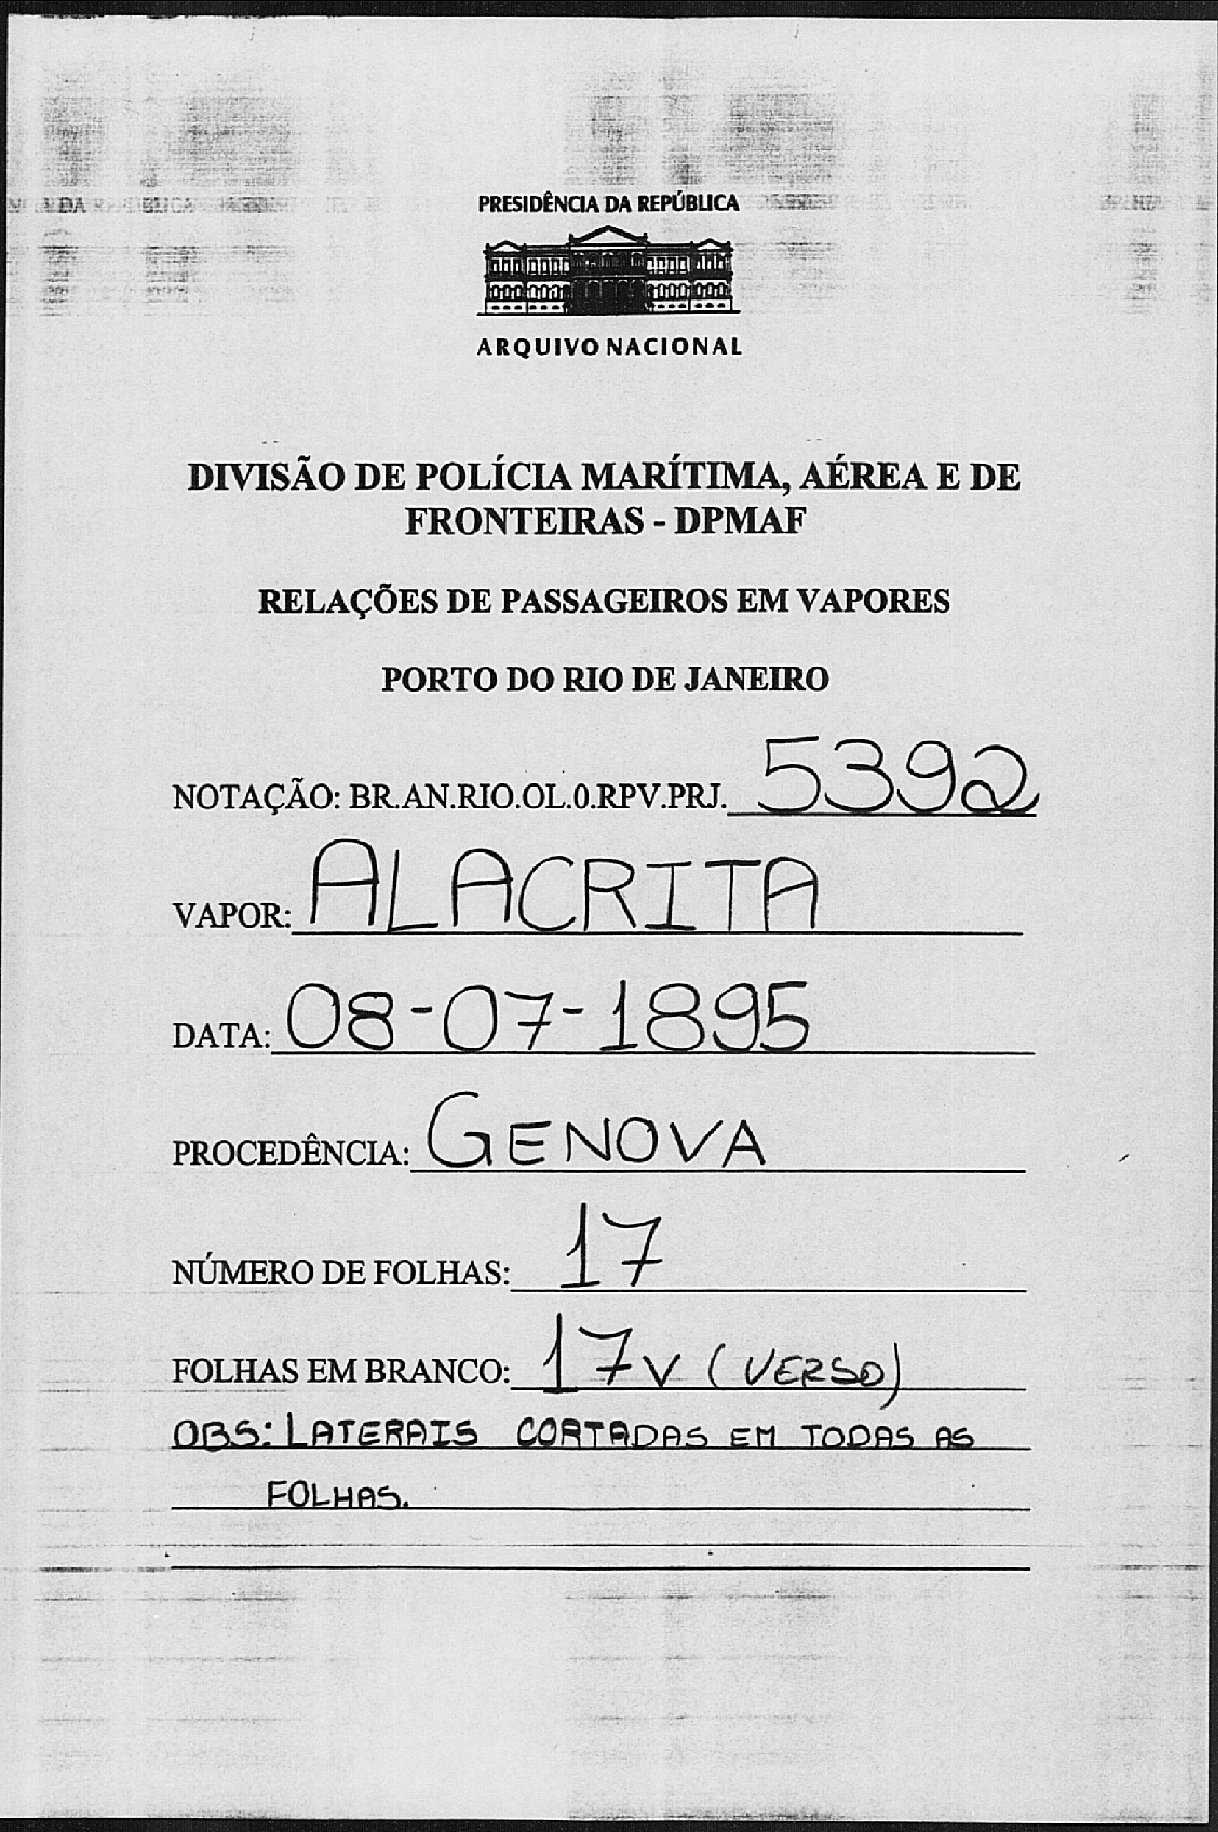 PRESIDÊNCIA DA REPÚBLICA
ARQUIVO NACIONAL
DIVISÃO DE POLÍCIA MARÍTIMA, AÉREA E DE
FRONTEIRAS - DPMAF
RELAÇÕES DE PASSAGEIROS EM VAPORES
PORTO DO RIO DE JANEIRO
NOTAÇÃO: BR.AN.RIO.OL.0.RPV.PRJ. 5392
VAPOR: ALACRITA
DATA: 08-07-1895
PROCEDÊNCIA: GENOVA
NÚMERO DE FOLHAS: 17
FOLHAS EM BRANCO: 17V (VERSO)
OBS: LATERAIS CORTADAS EM TODAS AS
FOLHAS.